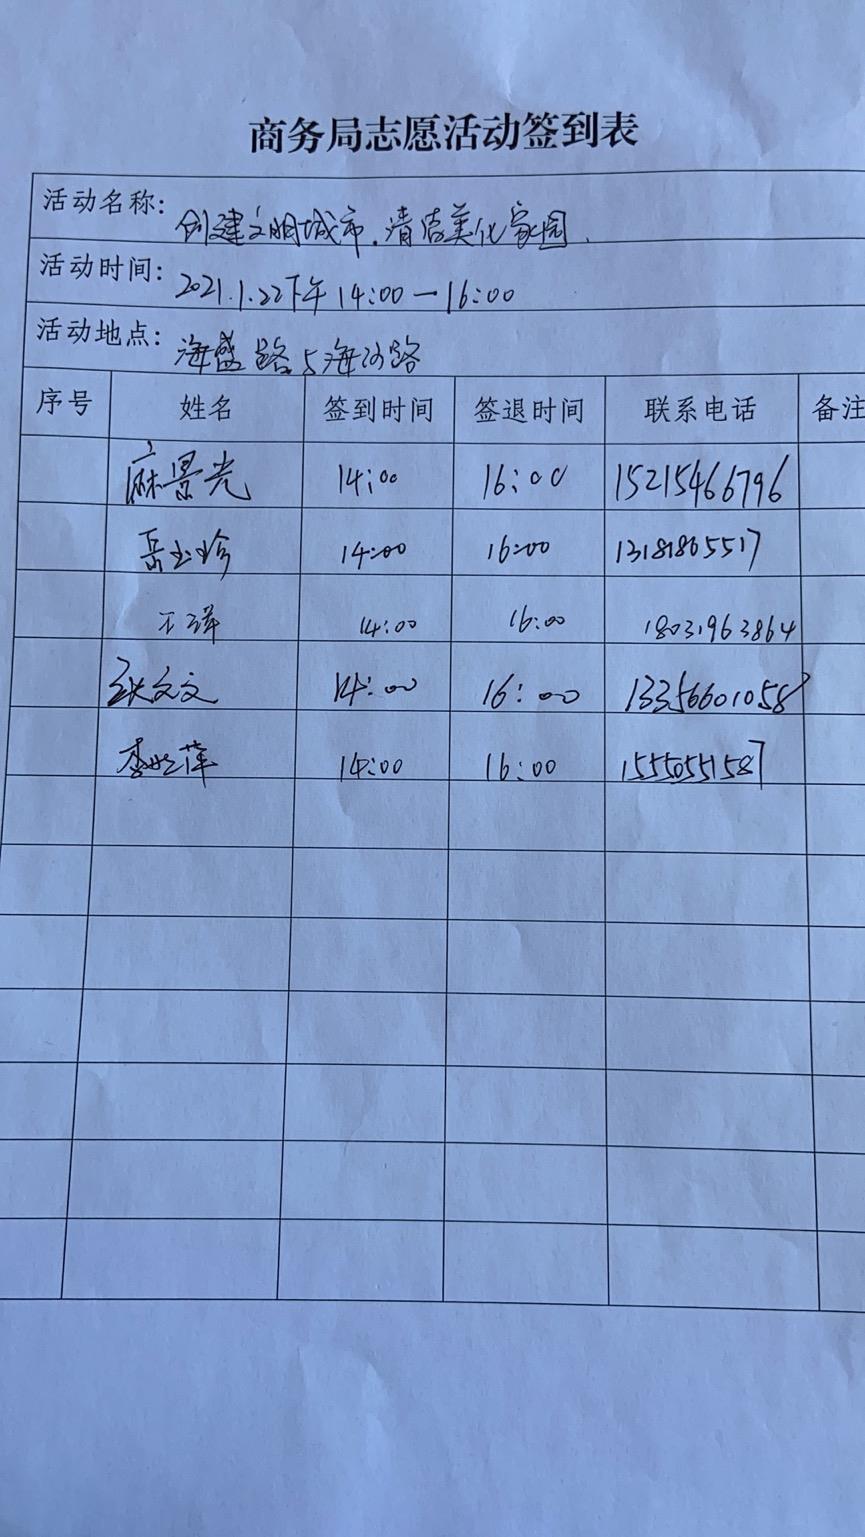 商务局志愿活动签到表
活动名称: 创建文明城市.清洁美化家园.
活动时间: 2021.1.22下午14:00—16:00
活动地点: 海盛路与海河路
序号 姓名 签到时间 签退时间 联系电话 备注
麻景光 14:00 16:00 15215466796
岳玉珍 14:00 16:00 13181865517
14:00 16:00 18031963864
张文文 14:00 16:00 13356601058
李晓萍 14:00 16:00 15550551587